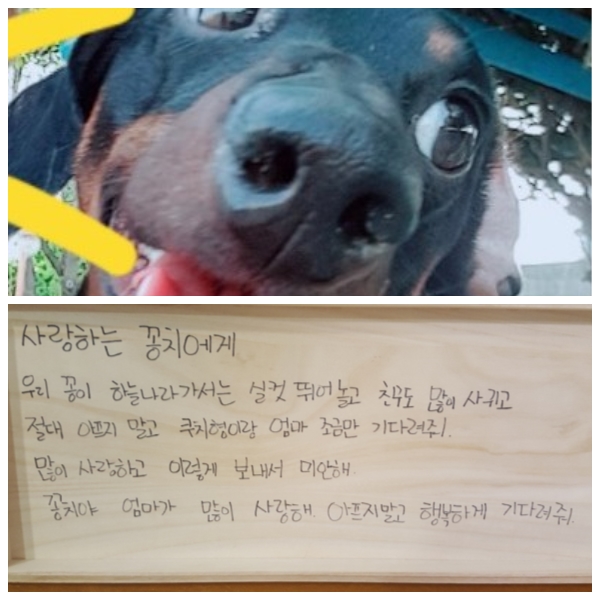 사랑하는 꽁치에게
우리 꽁이 하늘나라가서는 실컷 뛰어놀고 친구도 많이 사귀고
절대 아프지 말고 쿠치형이랑 엄마 조금만 기다려줘!
많이 사랑하고 이렇게 보내서 미안해.
꽁치야 엄마가 많이 사랑해. 아프지말고 행복하게 기다려줘!